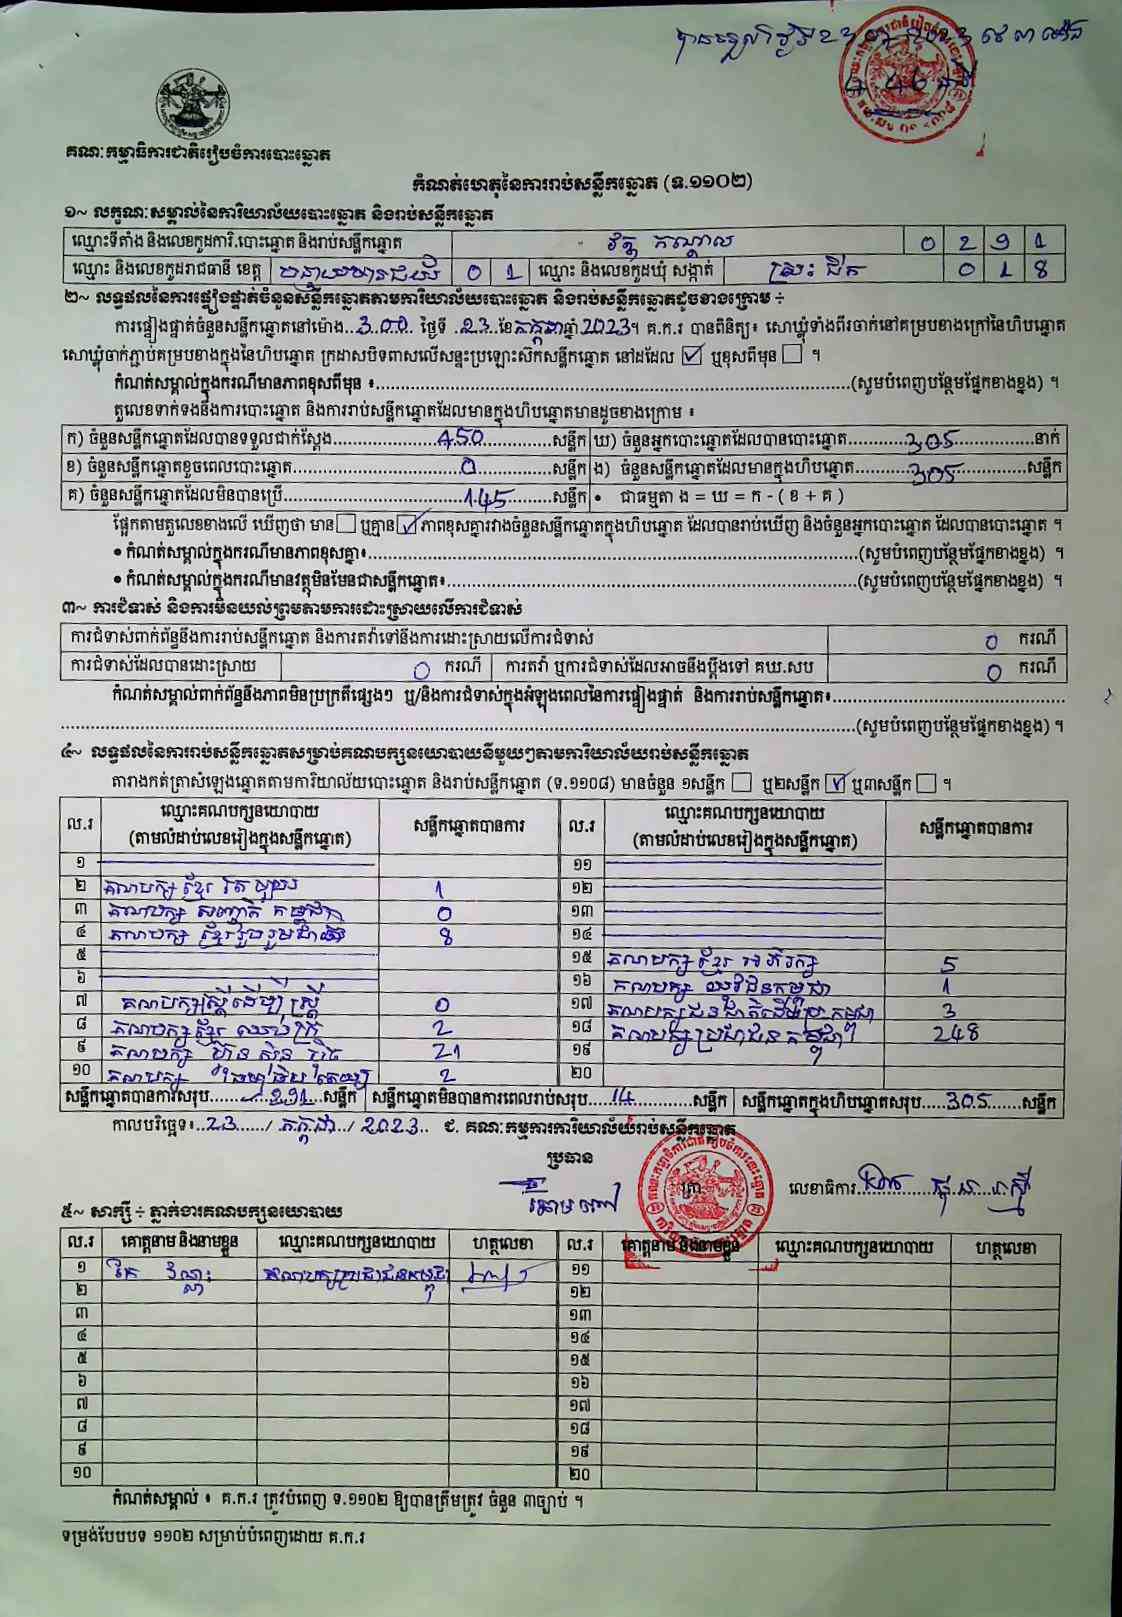 គណៈកម្មាធិការជាតិរៀបចំការបោះឆ្នោត
កំណត់ហេតុនៃការរាប់សន្លឹកឆ្នោត (ទ.១១០២)
១~ លក្ខណៈសម្គាល់នៃការិយាល័យបោះឆ្នោត និងរាប់សន្លឹកឆ្នោត
ឈ្មោះទីតាំង និងលេខកូដការិ.បោះឆ្នោត និងរាប់សន្លឹកឆ្នោត វត្ត កណ្តាល 0 2 9 1
ឈ្មោះ និងលេខកូដរាជធានី ខេត្ត បន្ទាយមានជ័យ 0 1 ឈ្មោះ និងលេខកូដឃុំ សង្កាត់ ស្រះ ជីក 0 1 8
២~ លទ្ធផលនៃការផ្ទៀងផ្ទាត់ចំនួនសន្លឹកឆ្នោតតាមការិយាល័យបោះឆ្នោត និងរាប់សន្លឹកឆ្នោតដូចខាងក្រោម ÷
ការផ្ទៀងផ្ទាត់ចំនួនសន្លឹកឆ្នោតនៅម៉ោង..3.00.. ថ្ងៃទី ..23..ខែកក្កដាឆ្នាំ2023។ គ.ក.រ បានពិនិត្យ៖ សោឃ្លុំទាំងពីរចាក់នៅគម្របខាងក្រៅនៃហិបឆ្នោត
សោឃ្លុំចាក់ភ្ជាប់គម្របខាងក្នុងនៃហិបឆ្នោត ក្រដាសបិទពាសលើសន្ទះប្រឡោះស៊កសន្លឹកឆ្នោត នៅដដែល ☑ ឬខុសពីមុន ☐ ។
កំណត់សម្គាល់ក្នុងករណីមានភាពខុសពីមុន ៖......(សូមបំពេញបន្ថែមផ្នែកខាងខ្នង) ។
តួលេខទាក់ទងនឹងការបោះឆ្នោត និងការរាប់សន្លឹកឆ្នោតដែលមានក្នុងហិបឆ្នោតមានដូចខាងក្រោម ៖
ក) ចំនួនសន្លឹកឆ្នោតដែលបានទទួលជាក់ស្តែង......450......សន្លឹក ឃ) ចំនួនអ្នកបោះឆ្នោតដែលបានបោះឆ្នោត......305......នាក់
ខ) ចំនួនសន្លឹកឆ្នោតខូចពេលបោះឆ្នោត......0......សន្លឹក ង) ចំនួនសន្លឹកឆ្នោតដែលមានក្នុងហិបឆ្នោត......305......សន្លឹក
គ) ចំនួនសន្លឹកឆ្នោតដែលមិនបានប្រើ......145......សន្លឹក • ជាធម្មតា ង = ឃ = ក - ( ខ + គ )
ផ្អែកតាមតួលេខខាងលើ ឃើញថា មាន ☐ ឬគ្មាន ☑ ភាពខុសគ្នារវាងចំនួនសន្លឹកឆ្នោតក្នុងហិបឆ្នោត ដែលបានរាប់ឃើញ និងចំនួនអ្នកបោះឆ្នោត ដែលបានបោះឆ្នោត ។
• កំណត់សម្គាល់ក្នុងករណីមានភាពខុសគ្នា៖......(សូមបំពេញបន្ថែមផ្នែកខាងខ្នង) ។
• កំណត់សម្គាល់ក្នុងករណីមានវត្ថុមិនមែនជាសន្លឹកឆ្នោត៖......(សូមបំពេញបន្ថែមផ្នែកខាងខ្នង) ។
៣~ ការជំទាស់ និងការមិនយល់ព្រមតាមការដោះស្រាយលើការជំទាស់
ការជំទាស់ពាក់ព័ន្ធនឹងការរាប់សន្លឹកឆ្នោត និងការតវ៉ាទៅនឹងការដោះស្រាយលើការជំទាស់ 0 ករណី
ការជំទាស់ដែលបានដោះស្រាយ 0 ករណី ការតវ៉ា ឬការជំទាស់ដែលអាចនឹងប្តឹងទៅ គឃ.សប 0 ករណី
កំណត់សម្គាល់ពាក់ព័ន្ធនឹងភាពមិនប្រក្រតីផ្សេងៗ ឬ/និងការជំទាស់ក្នុងអំឡុងពេលនៃការផ្ទៀងផ្ទាត់ និងការរាប់សន្លឹកឆ្នោត៖......
......(សូមបំពេញបន្ថែមផ្នែកខាងខ្នង) ។
៤~ លទ្ធផលនៃការរាប់សន្លឹកឆ្នោតសម្រាប់គណបក្សនយោបាយនីមួយៗតាមការិយាល័យរាប់សន្លឹកឆ្នោត
តារាងកត់ត្រាសំឡេងឆ្នោតតាមការិយាល័យបោះឆ្នោត និងរាប់សន្លឹកឆ្នោត (ទ.១១០៨) មានចំនួន ១សន្លឹក ☐ ឬ២សន្លឹក ☑ ឬ៣សន្លឹក ☐ ។
ល.រ ឈ្មោះគណបក្សនយោបាយ (តាមលំដាប់លេខរៀងក្នុងសន្លឹកឆ្នោត) សន្លឹកឆ្នោតបានការ ល.រ ឈ្មោះគណបក្សនយោបាយ (តាមលំដាប់លេខរៀងក្នុងសន្លឹកឆ្នោត) សន្លឹកឆ្នោតបានការ
១ ១១
២ គណបក្ស ខ្មែរ 1 ១២
៣ គណបក្ស សញ្ជាតិ កម្ពុជា 0 ១៣
៤ គណបក្ស ខ្មែររួបរួមជាតិ 8 ១៤
៥ ១៥ គណបក្ស ខ្មែរ អភិរក្ស 5
៦ ១៦ គណបក្ស យុវជនកម្ពុជា 1
៧ គណបក្សស្ត្រីដើម្បីស្ត្រី 0 ១៧ គណបក្សជនជាតិដើម 3
៨ គណបក្ស ខ្មែរ ឈប់ក្រ 2 ១៨ គណបក្សប្រជាជន កម្ពុជា 248
៩ គណបក្ស ហ៊្វុនស៊ិនប៉ិច 21 ១៩
១០ គណបក្ស 2 ២០
សន្លឹកឆ្នោតបានការសរុប......291...សន្លឹក សន្លឹកឆ្នោតមិនបានការពេលរាប់សរុប...14......សន្លឹក សន្លឹកឆ្នោតក្នុងហិបឆ្នោតសរុប.....305......សន្លឹក
កាលបរិច្ឆេទ៖..23....../ កក្កដា../ 2023.. ជ. គណៈកម្មការការិយាល័យរាប់សន្លឹកឆ្នោត
ប្រធាន
ត្រា
លេខាធិការ
៥~ សាក្សី ÷ ភ្នាក់ងារគណបក្សនយោបាយ
ល.រ គោត្តនាម និងនាមខ្លួន ឈ្មោះគណបក្សនយោបាយ ហត្ថលេខា ល.រ គោត្តនាម និងនាមខ្លួន ឈ្មោះគណបក្សនយោបាយ ហត្ថលេខា
១ កែ វណ្ណះ គណបក្សប្រជាជនកម្ពុជា ១១
២ ១២
៣ ១៣
៤ ១៤
៥ ១៥
៦ ១៦
៧ ១៧
៨ ១៨
៩ ១៩
១០ ២០
កំណត់សម្គាល់ ៖ គ.ក.រ ត្រូវបំពេញ ទ.១១០២ ឱ្យបានត្រឹមត្រូវ ចំនួន ៣ច្បាប់ ។
ទម្រង់បែបបទ ១១០២ សម្រាប់បំពេញដោយ គ.ក.រ